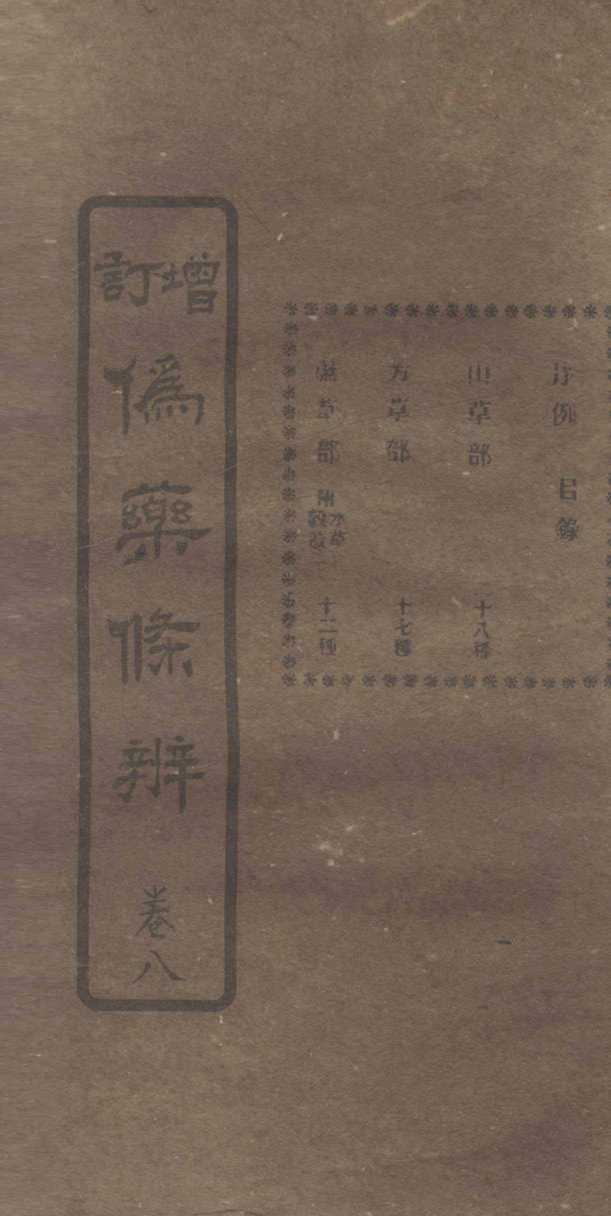 序例 目錄
山草部 十八種
芳草部 十七種
隰草部 附水草 十二種
增訂
僞藥條辨
卷八